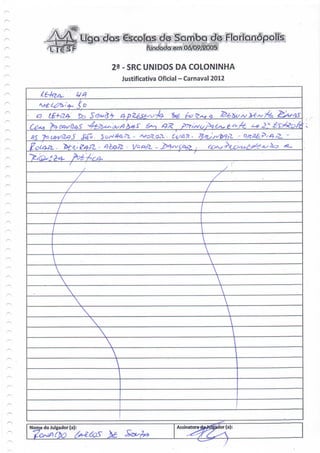 Liga das Escolas de Samba de Florianópolis
LIESF
fundada em 06/09/2005
2ª - SRC UNIDOS DA COLONINHA
Justificativa Oficial – Carnaval 2012
LETRA 4A
MELODIA 50
A LETRA DO SAMBA APRESENTA DE FORMA REDUNDANTE RIMAS
COM PALAVRAS TERMINADAS EM AR PRINCIPALMENTE A 2ª ESTROFE.
AS PALAVRAS SÃO: SONHAR - MORAR BRINDAR - ARREPIAR -
ROLAR - - VOAR - DANÇAR, COMPROMETENDO A
POÉTICA
Nome do Julgador (a):
RONALDO CARLOS DE SOUZA
Assinatura do Julgador (a):